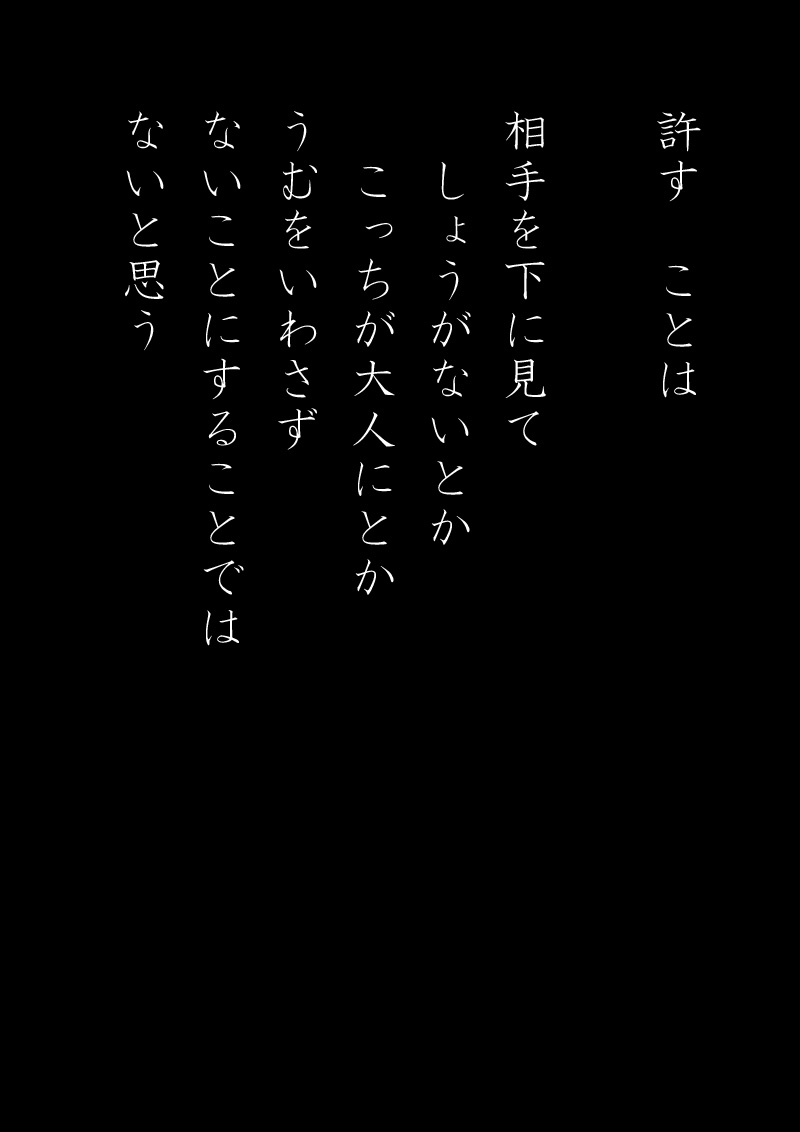 許す　ことは
相手を下に見て
しょうがないとか
こっちが大人にとか
うむをいわさず
ないことにすることでは
ないと思う